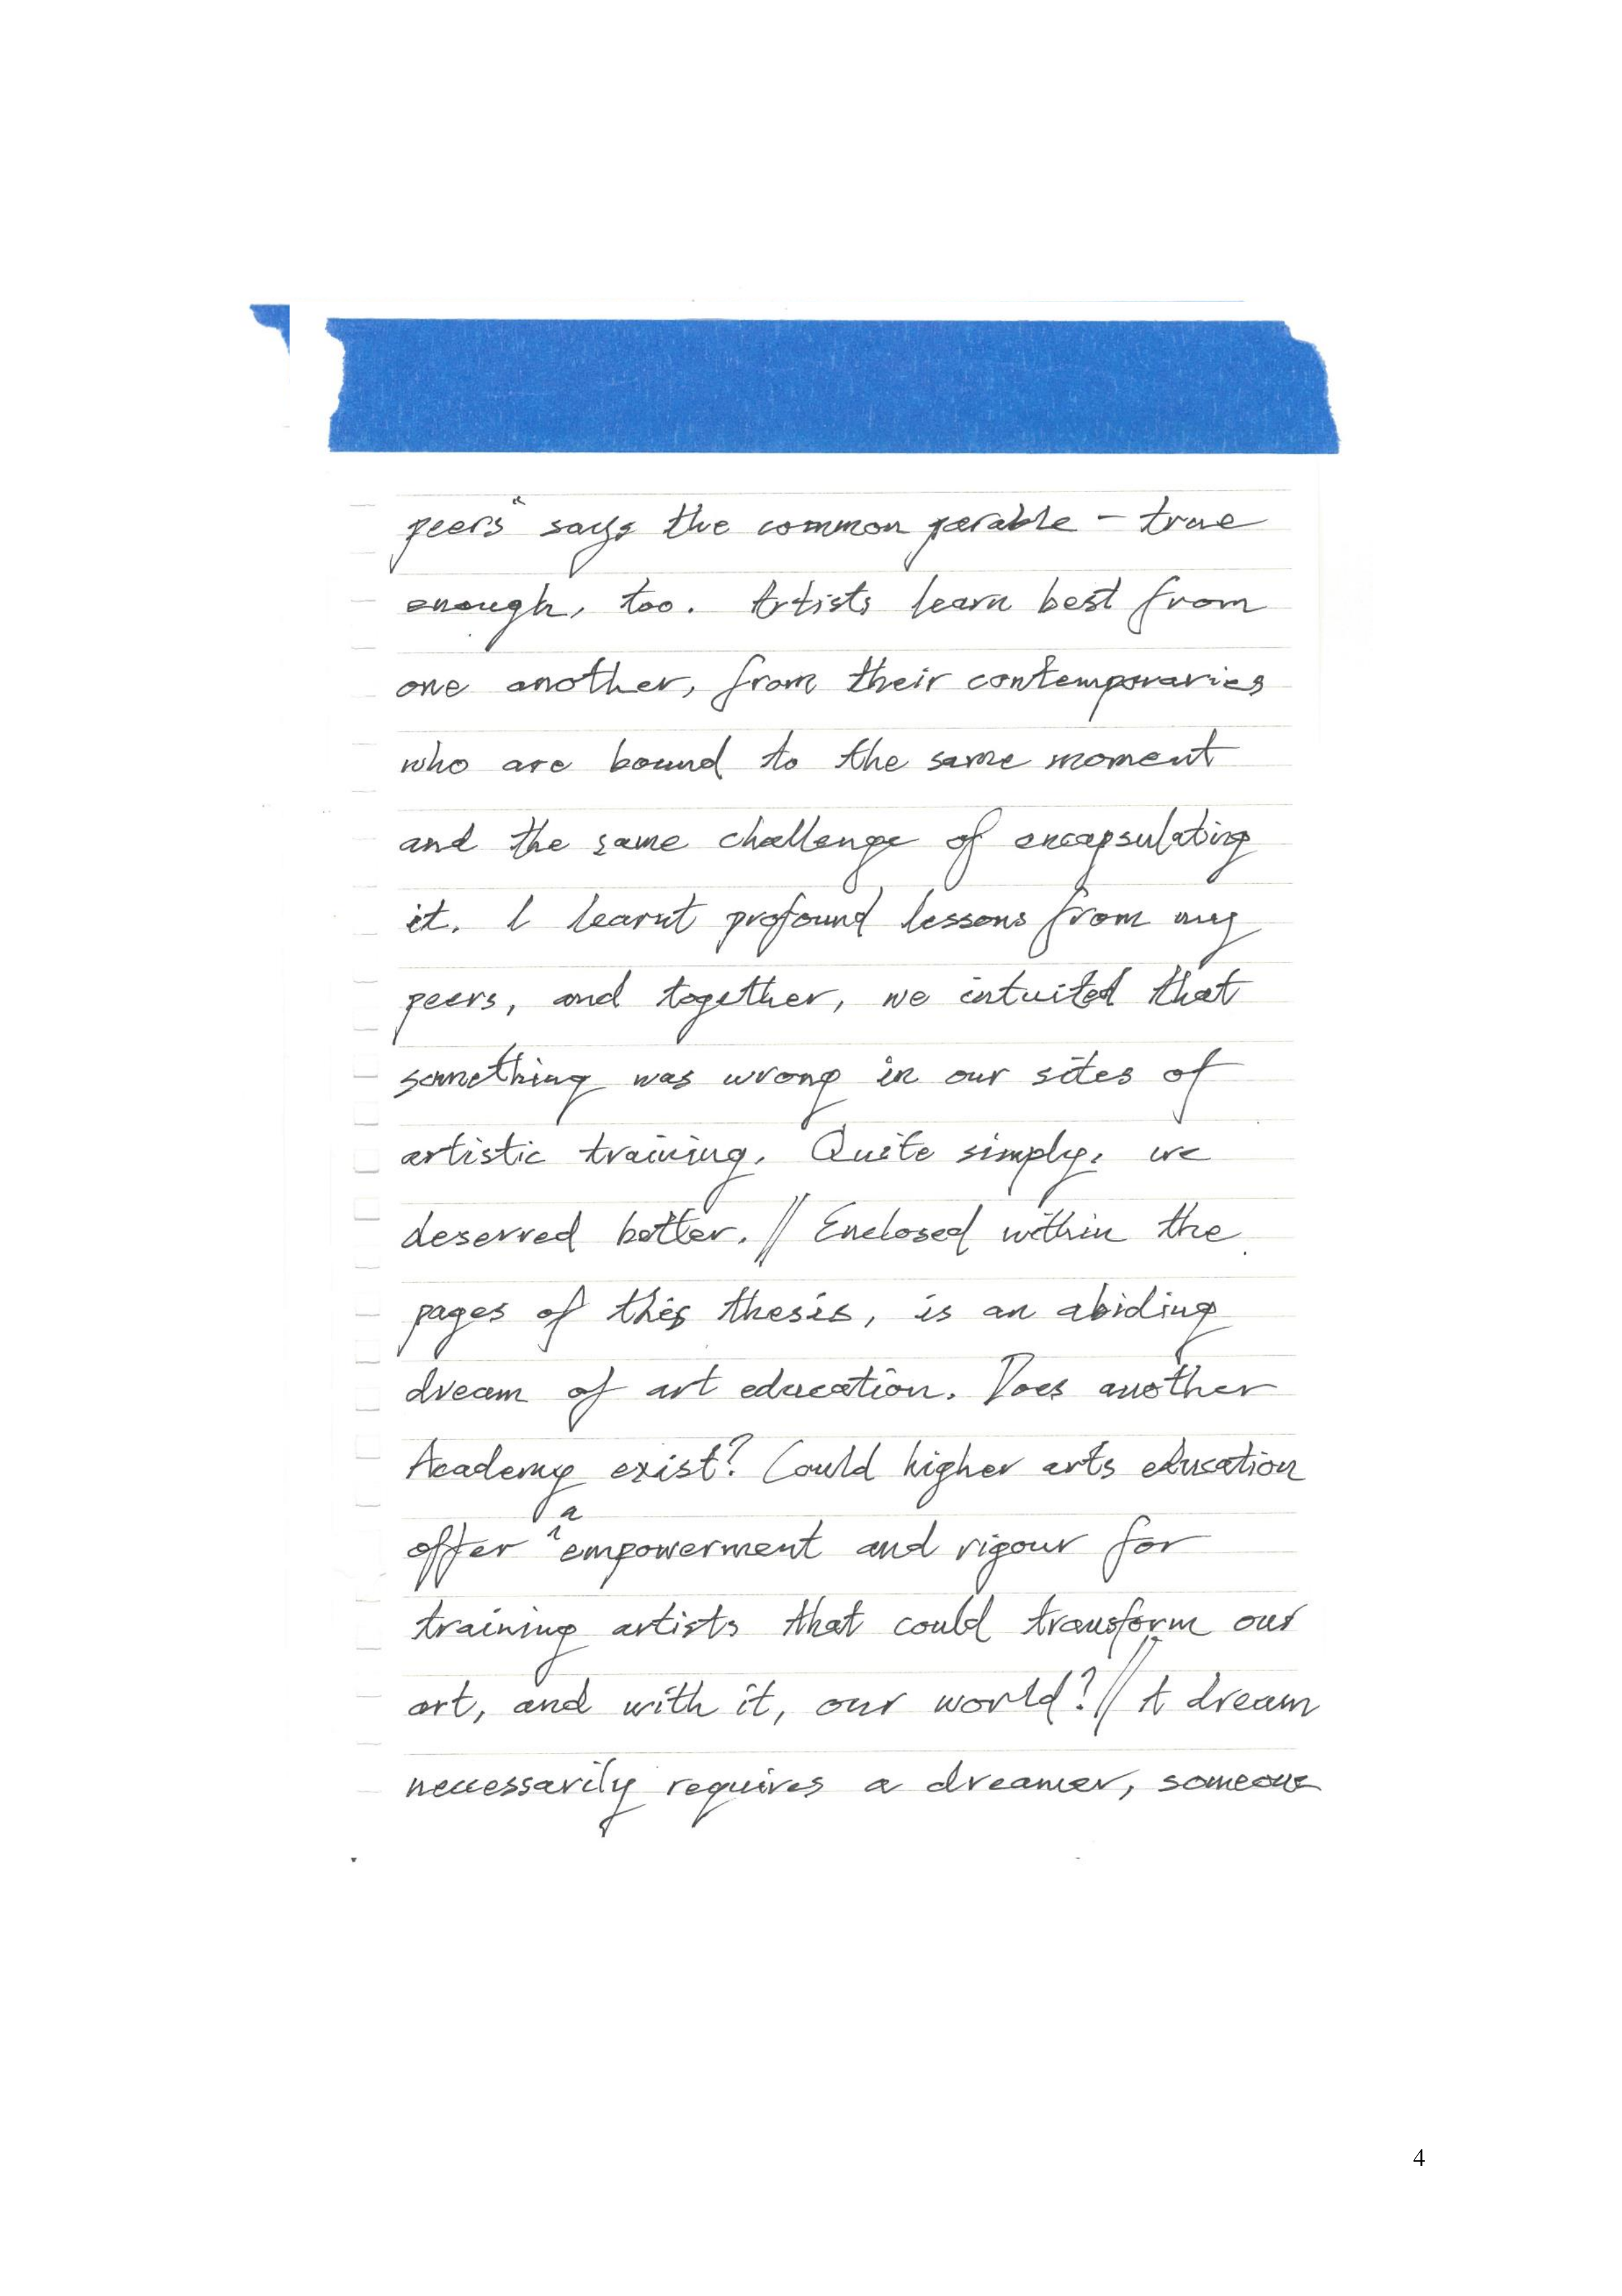 peers" says the common parable – true
enough, too. Artists learn best from
one another, from their contemporaries
who are bound to the same moment
and the same challenge of encapsulating
it. I learnt profound lessons from my
peers, and together, we intuited that
something was wrong in our sites of
artistic training. Quite simply, we
deserved better. // Enclosed within the
pages of this thesis, is an abiding
dream of art education. Does another
Academy exist? Could higher arts education
a
offer ^ empowerment and rigour for
training artists that could transform our
art, and with it, our world? // A dream
necessarily requires a dreamer, someone
4